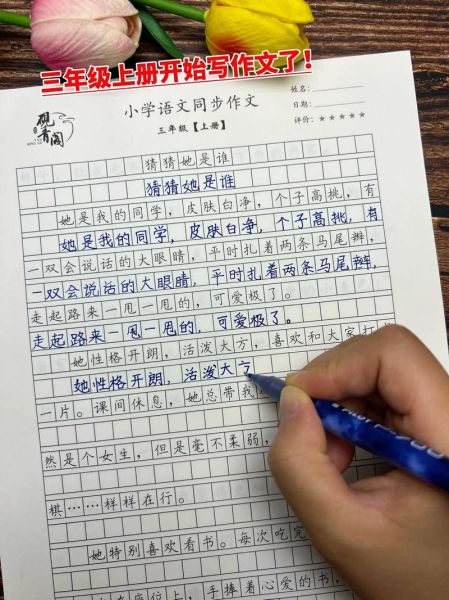 三年级上册开始写作文了!
姓名:
小学语文同步作文
日期:
三年级【上册】
评价:★★★★★
砚青阁
猜猜她是谁
猜猜她是谁
她是我的同学,皮肤白净,个子高挑,有
她是我的同学,皮肤白净,个子高挑,有
一双会说话的大眼睛,平时扎着两条马尾辫,
一双会说话的大眼睛,平时扎着两条马尾辫,
走起路来一甩一甩的,可爱极了。
走起路来一甩一甩的,可爱极了。
她性格开朗,活泼大方,喜欢和大家打
她性格开朗,活泼大方
一片。课间休息,她总带我
然是个女生,但是毫不柔弱,
棋……样样在行。
她特别喜欢看书。每次吃完
座位上,手捧着心爱的书,